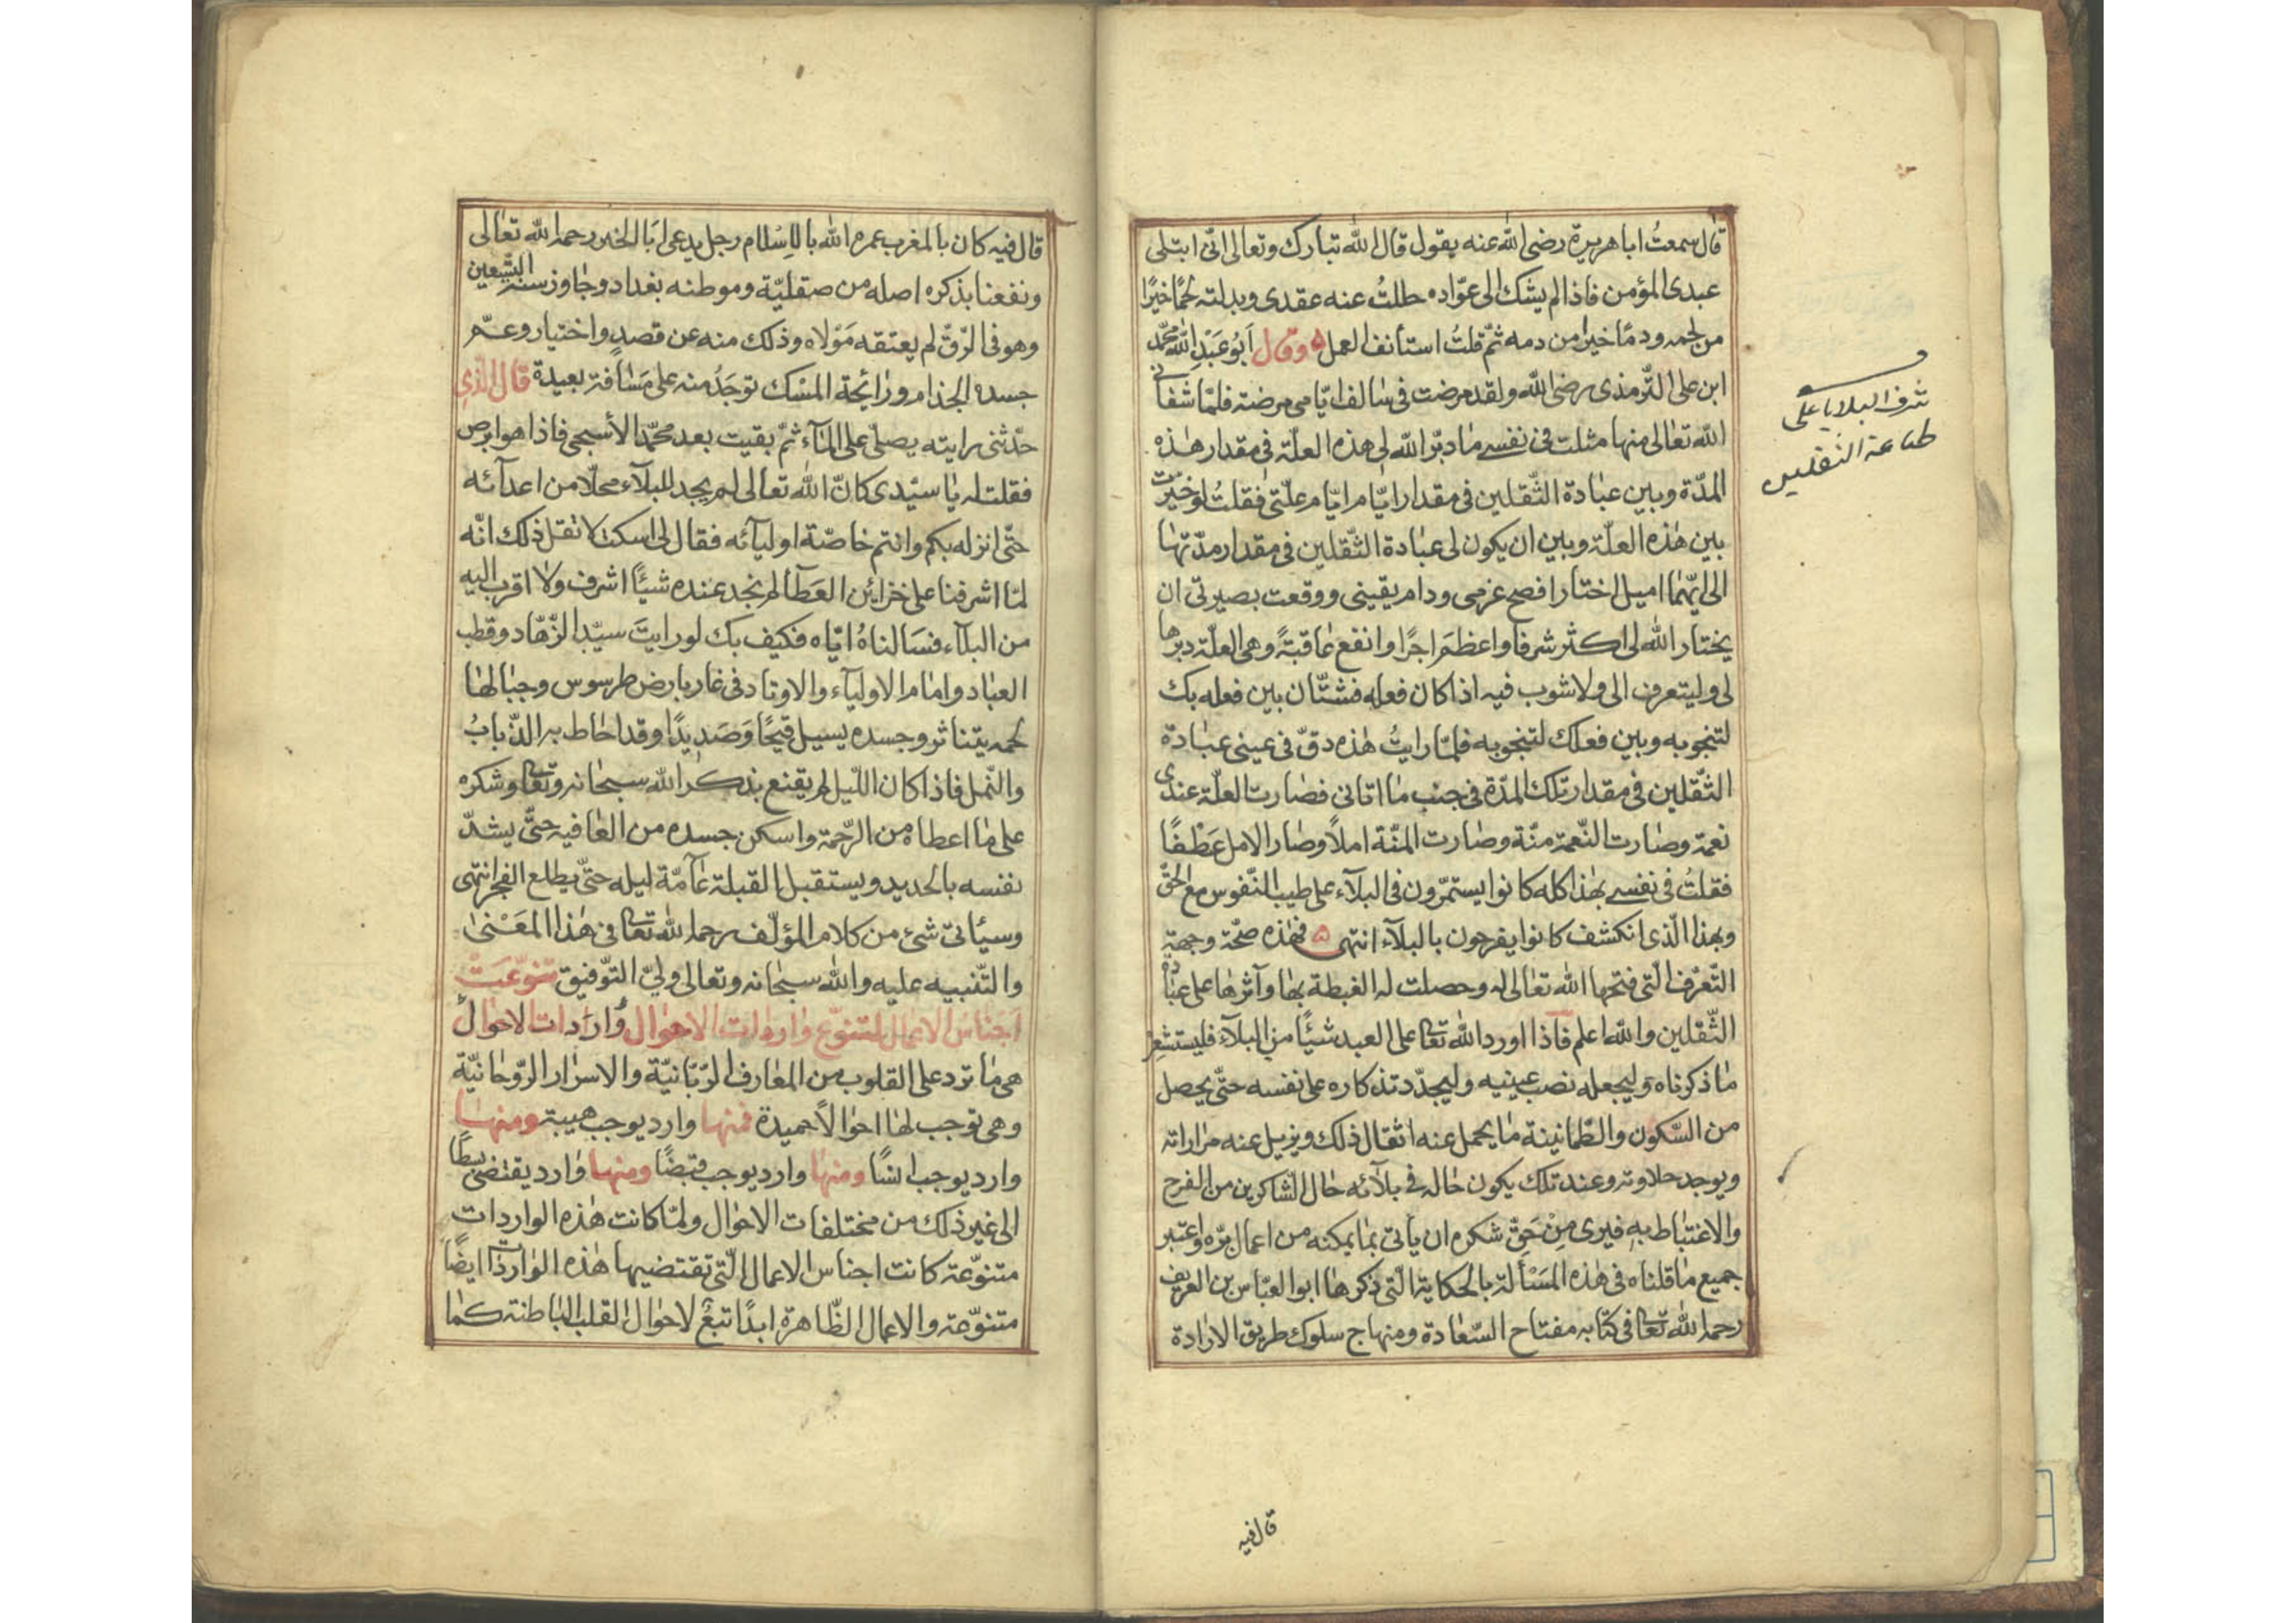 قال سمعتُ ابا هريرة رضى الله عنه يقول قال الله تبارك وتعالى انّى ابتلى
عبدى المؤمن فاذا لم يشك الى عوّاده حللتُ عنه عقدى وبدلته لحمًا خيرًا
من لحمه ودمًا خيرًا من دمه ثمّ قلتُ استأنف العمل ۵ وقال اَبُو عَبْدِ الله محمّد
ابن على الترّمذى رضى الله ولقد مرضت فى سالف ايّامى مرضة فلمّا شفانى
الله تعالى منها مثلت فى نفسى ما دبّر الله لى هذه العلّة فى مقدار هذه
المدّة وبين عبادة الثّقلين فى مقدار ايّام ايّام علّتى فقلتُ لو خيّرت
بين هذه العلّة وبين ان يكون لى عبادة الثّقلين فى مقدار مدّتها
الى ايّهما اميل اختارا فصح عزمى ودام يقينى ووقعت بصيرتى ان
يختار الله لى اكثر شرفا واعظمَ اجرًا وانفع عاقبةً وهى العلّة دبرها
لى وليتعرف الى ولا شوب فيه اذا كان فعله فشتّان بين فعله بك
لتنجو به وبين فعلك لتنجو به فلمّا رايتُ هذه دقّ فى عينى عبادة
الثّقلين فى مقدار تلك المدّة فى جنب ما اتانى فصارت العلّة عندى
نعمة وصارت النّعمة منّة وصارت المنّة املاً وصار الامل عَطْفًا
فقلتُ فى نفسى بهذا كله كانوا يستمرّون فى البلآء على طيب النّفوس مع الحقّ
وبهذا الّذى انكشف كانوا يفرحون بالبلآء انتهى ۵ فهذه صحّة وجهة
التّعرّف الّتى فتحها الله تعالى له وحصلت له الغبطة بها وآثرها على عبادة
الثّقلين والله اعلم فاذا اورد الله تعالى على العبد شيئًا من البلآء فليستشعر
ما ذكرناه وليجعله نصب عينيه وليجدّد تذكاره على نفسه حتّى يحصل
من السّكون والطّمانينة ما يحمل عنه اثقال ذلك ويزيل عنه مراراته
ويوجد حلاوته وعند تلك يكون حاله فى بلآئه حال الشّاكرين من الفرح
والاغتباط به فيرى مِنْ حَقِّ شكره ان يأتى بما يمكنه من اعمال برّه واعتبر
جميع ما قلناه فى هذه المسْألة بالحكاية الّتى ذكرها ابو العبّاس بن العريف
رحمه الله تعالى فى كتابه مفتاح السّعادة ومنهاج سلوك طريق الارادة
شرف البلايا على
طاعة الثقلين
قال فيه
قال فيه كان بالمغرب عمره الله بالاِسْلام رجل يدعى اَبا الخير رحمه الله تعالى
ونفعنا بذكره اصله من صقليّة وموطنه بغداد وجاوز سنه التّسعين
وهو فى الرّقّ لم يعتقه مَوْلاه وذلك منه عن قصدٍ واختيار وعمّ
جسده الجذام ورائحة المسْك توجَدُ منه على مَسَافة بعيدة قال الّذى
حدّثنى رايته يصلّى على المآء ثمّ بقيت بعد محمّد الأسبجى فاذا هو ابرص
فقلت له يا سيّدى كانّ الله تعالى لم يجد للبلآء محلّا من اعدآئه
حتّى انزله بكم وانتم خاصّة اوليآئه فقال لى اسكت لا تقل ذلك انّه
لمّا اشرفنا على خزائن العَطآء لم نجد عنده شيئًا اشرف ولا اقرب اليه
من البلآء فسَالناهُ ايّاه فكيف بك لو رايتَ سيّد الزّهّاد وقطب
العباد وامام الاوليآء والاوتاد فى غار بارض طرسوس وجبالها
لحمه يتناثر وجسده يسيل قيحًا وَصَديدًا وقد احاط به الذّبابُ
والنّمل فاذا كان اللّيل لم يقنع بذكر الله سبحانه وتعالى وشكره
على ما اعطاه من الرّحمة واسكن جسده من العافيه حتّى يشدّ
نفسه بالحديد ويستقبل القبلة عآمّة ليله حتّى يطلع الفجر انتهى
وسيأتى شئ من كلام المؤلّف رحمه الله تعالى فى هذا المَعَنىٰ
والتّنبيه عليه والله سبحانه وتعالى ولىّ التّوفيق تنوّعَتْ
اَجْناسُ الاعمال لتنوّع واردات الاحوال وَارادات الاحوال
هى ما ترد على القلوب من المعارف الرّبّانيّة والاسرار الرّوحانيّة
وهى توجب لها احوالاً حميدة فمنها وارد يوجب هيبة ومنها
وارد يوجب انسًا ومنها وارد يوجب قبضًا ومنها وارد يقتضى بسطًا
الى غير ذلك من مختلفات الاحوال ولمّا كانت هذه الواردات
متنوّعة كانت اجناس الاعمال الّتى تقتضيها هذه الواردات ايضًا
متنوّعة والاعمال الظّاهرة ابدًا تبعٌ لاحوال القلب الباطنة كما